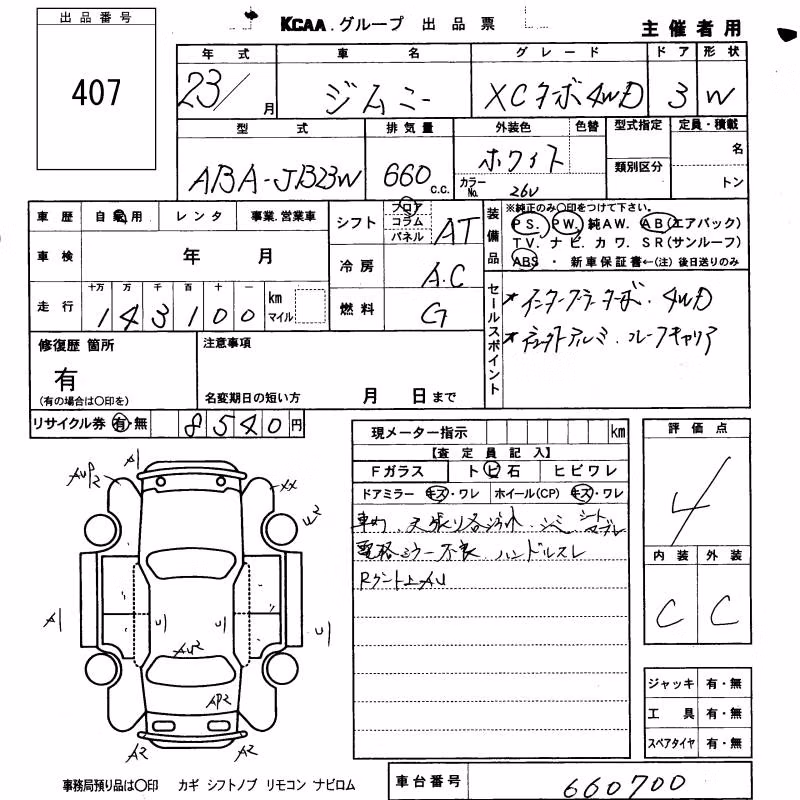 出品番号
407
KCAA.グループ 出品票
主催者用
年式 車名 グレード ドア 形状
23/ 月 ジムニー XCターボ4WD 3 W
型式 排気量 外装色 色替 型式指定 定員・積載
ABA-JB23W 660 c.c. ホワイト 名
カラーNo. 26U 類別区分 トン
車歴 自家用 レンタ 事業.営業車
シフト フロア コラム パネル AT
車検 年 月
冷房 A.C
走行 十万 万 千 百 十 一
1 4 3 1 0 0 km マイル
燃料 G
装備品
※純正のみ○印をつけて下さい。
PS. PW. 純AW. AB(エアバック)
TV. ナビ. カワ. SR(サンルーフ)
ABS ・ 新車保証書←(注) 後日送りのみ
セールスポイント
*インタークーラーターボ. 4WD
アルミ. ルーフキャリア
修復歴 箇所
有
(有の場合は○印を)
注意事項
名変期日の短い方 月 日まで
リサイクル券 有・無 8540円
現メーター指示 km
【査定員記入】
Fガラス トビ石 ヒビワレ
ドアミラー キズ・ワレ ホイール(CP) キズ・ワレ
車内 天張り各汚れ. シミ シート
電格ミラー不良 ハンドルスレ
評価点
4
内装 外装
C C
ジャッキ 有・無
工具 有・無
スペアタイヤ 有・無
A1
AUP2
XX
A1
U1
U1
U1
AU2
AP2
A2
A2
事務局預り品は○印 カギ シフトノブ リモコン ナビロム
車台番号 660700